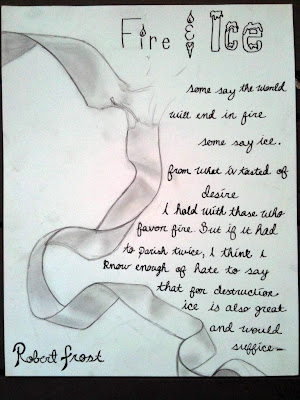 Fire & Ice
some say the world
will end in fire
some say ice.
from what iv tasted of
desire
i hold with those who
favor fire. But if it had
to parish twice, i think i
know enough of hate to say
that for destruction
ice is also great
and would
suffice—
Robert Frost